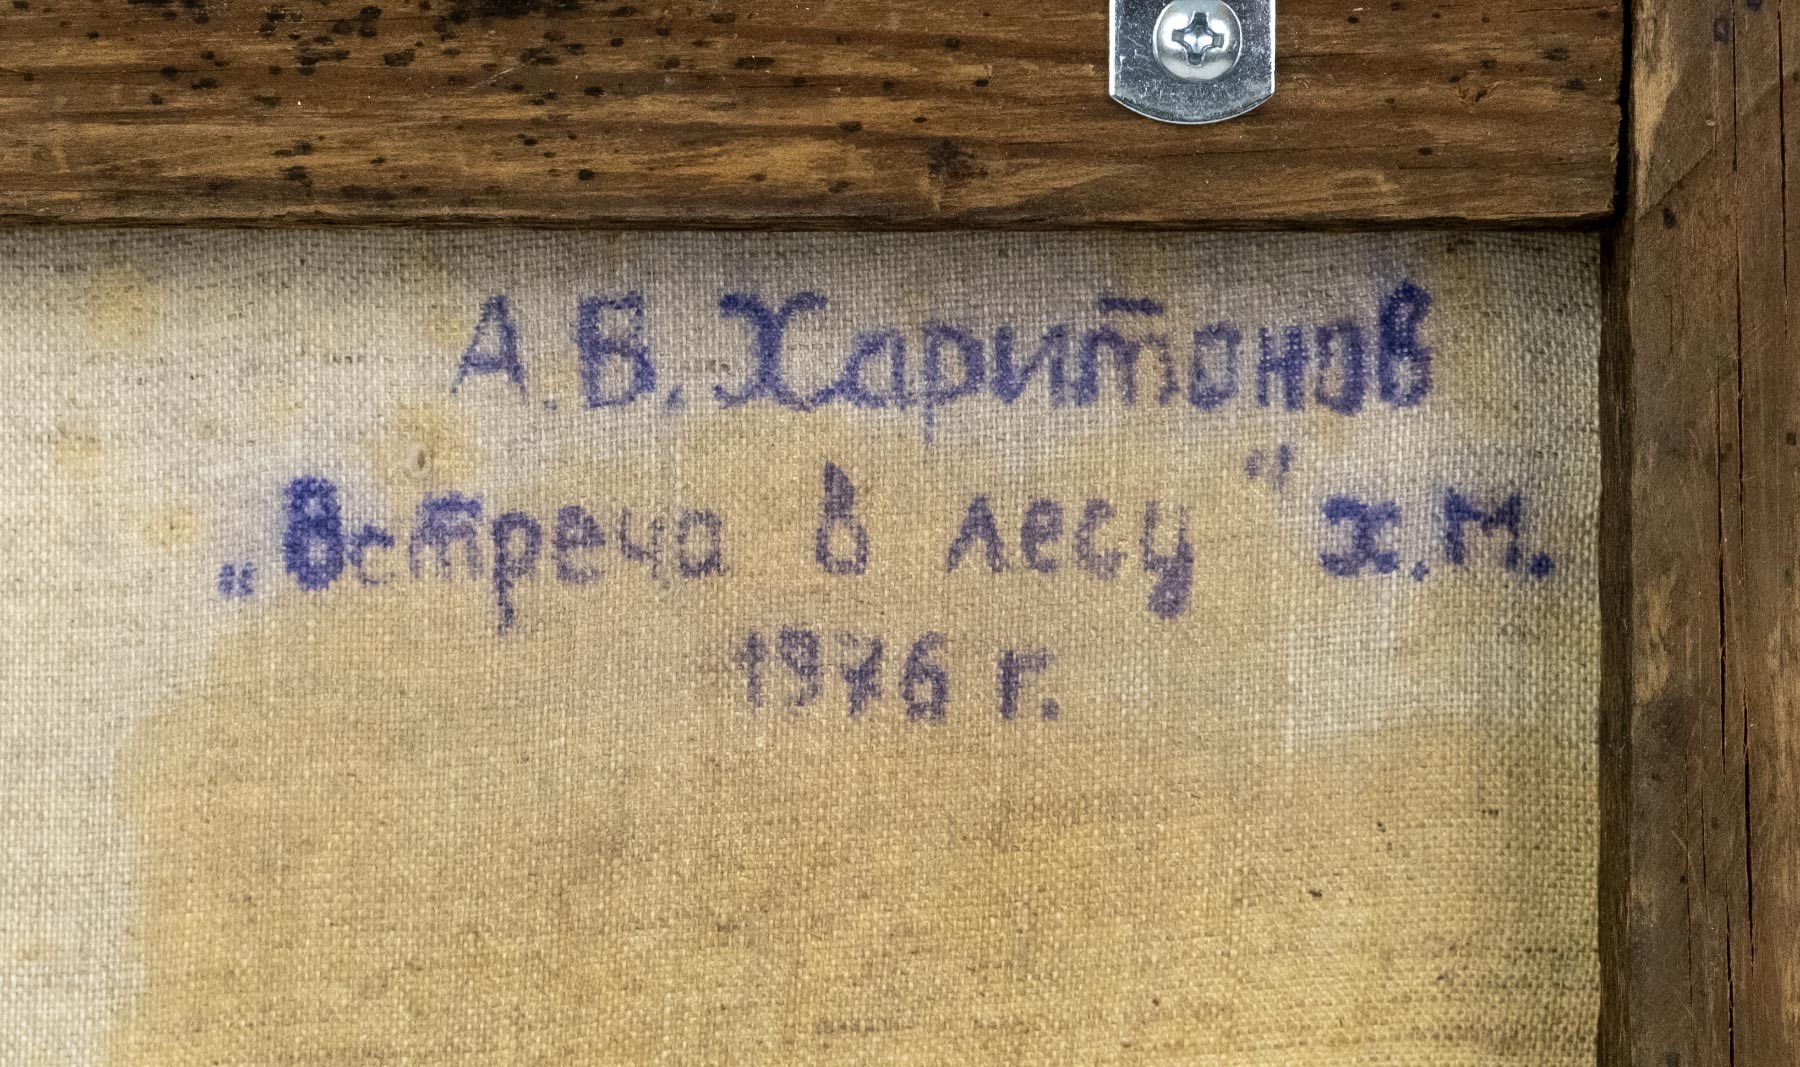 А.В. Харитонов
„Встреча в лесу“ х.м.
1976 г.